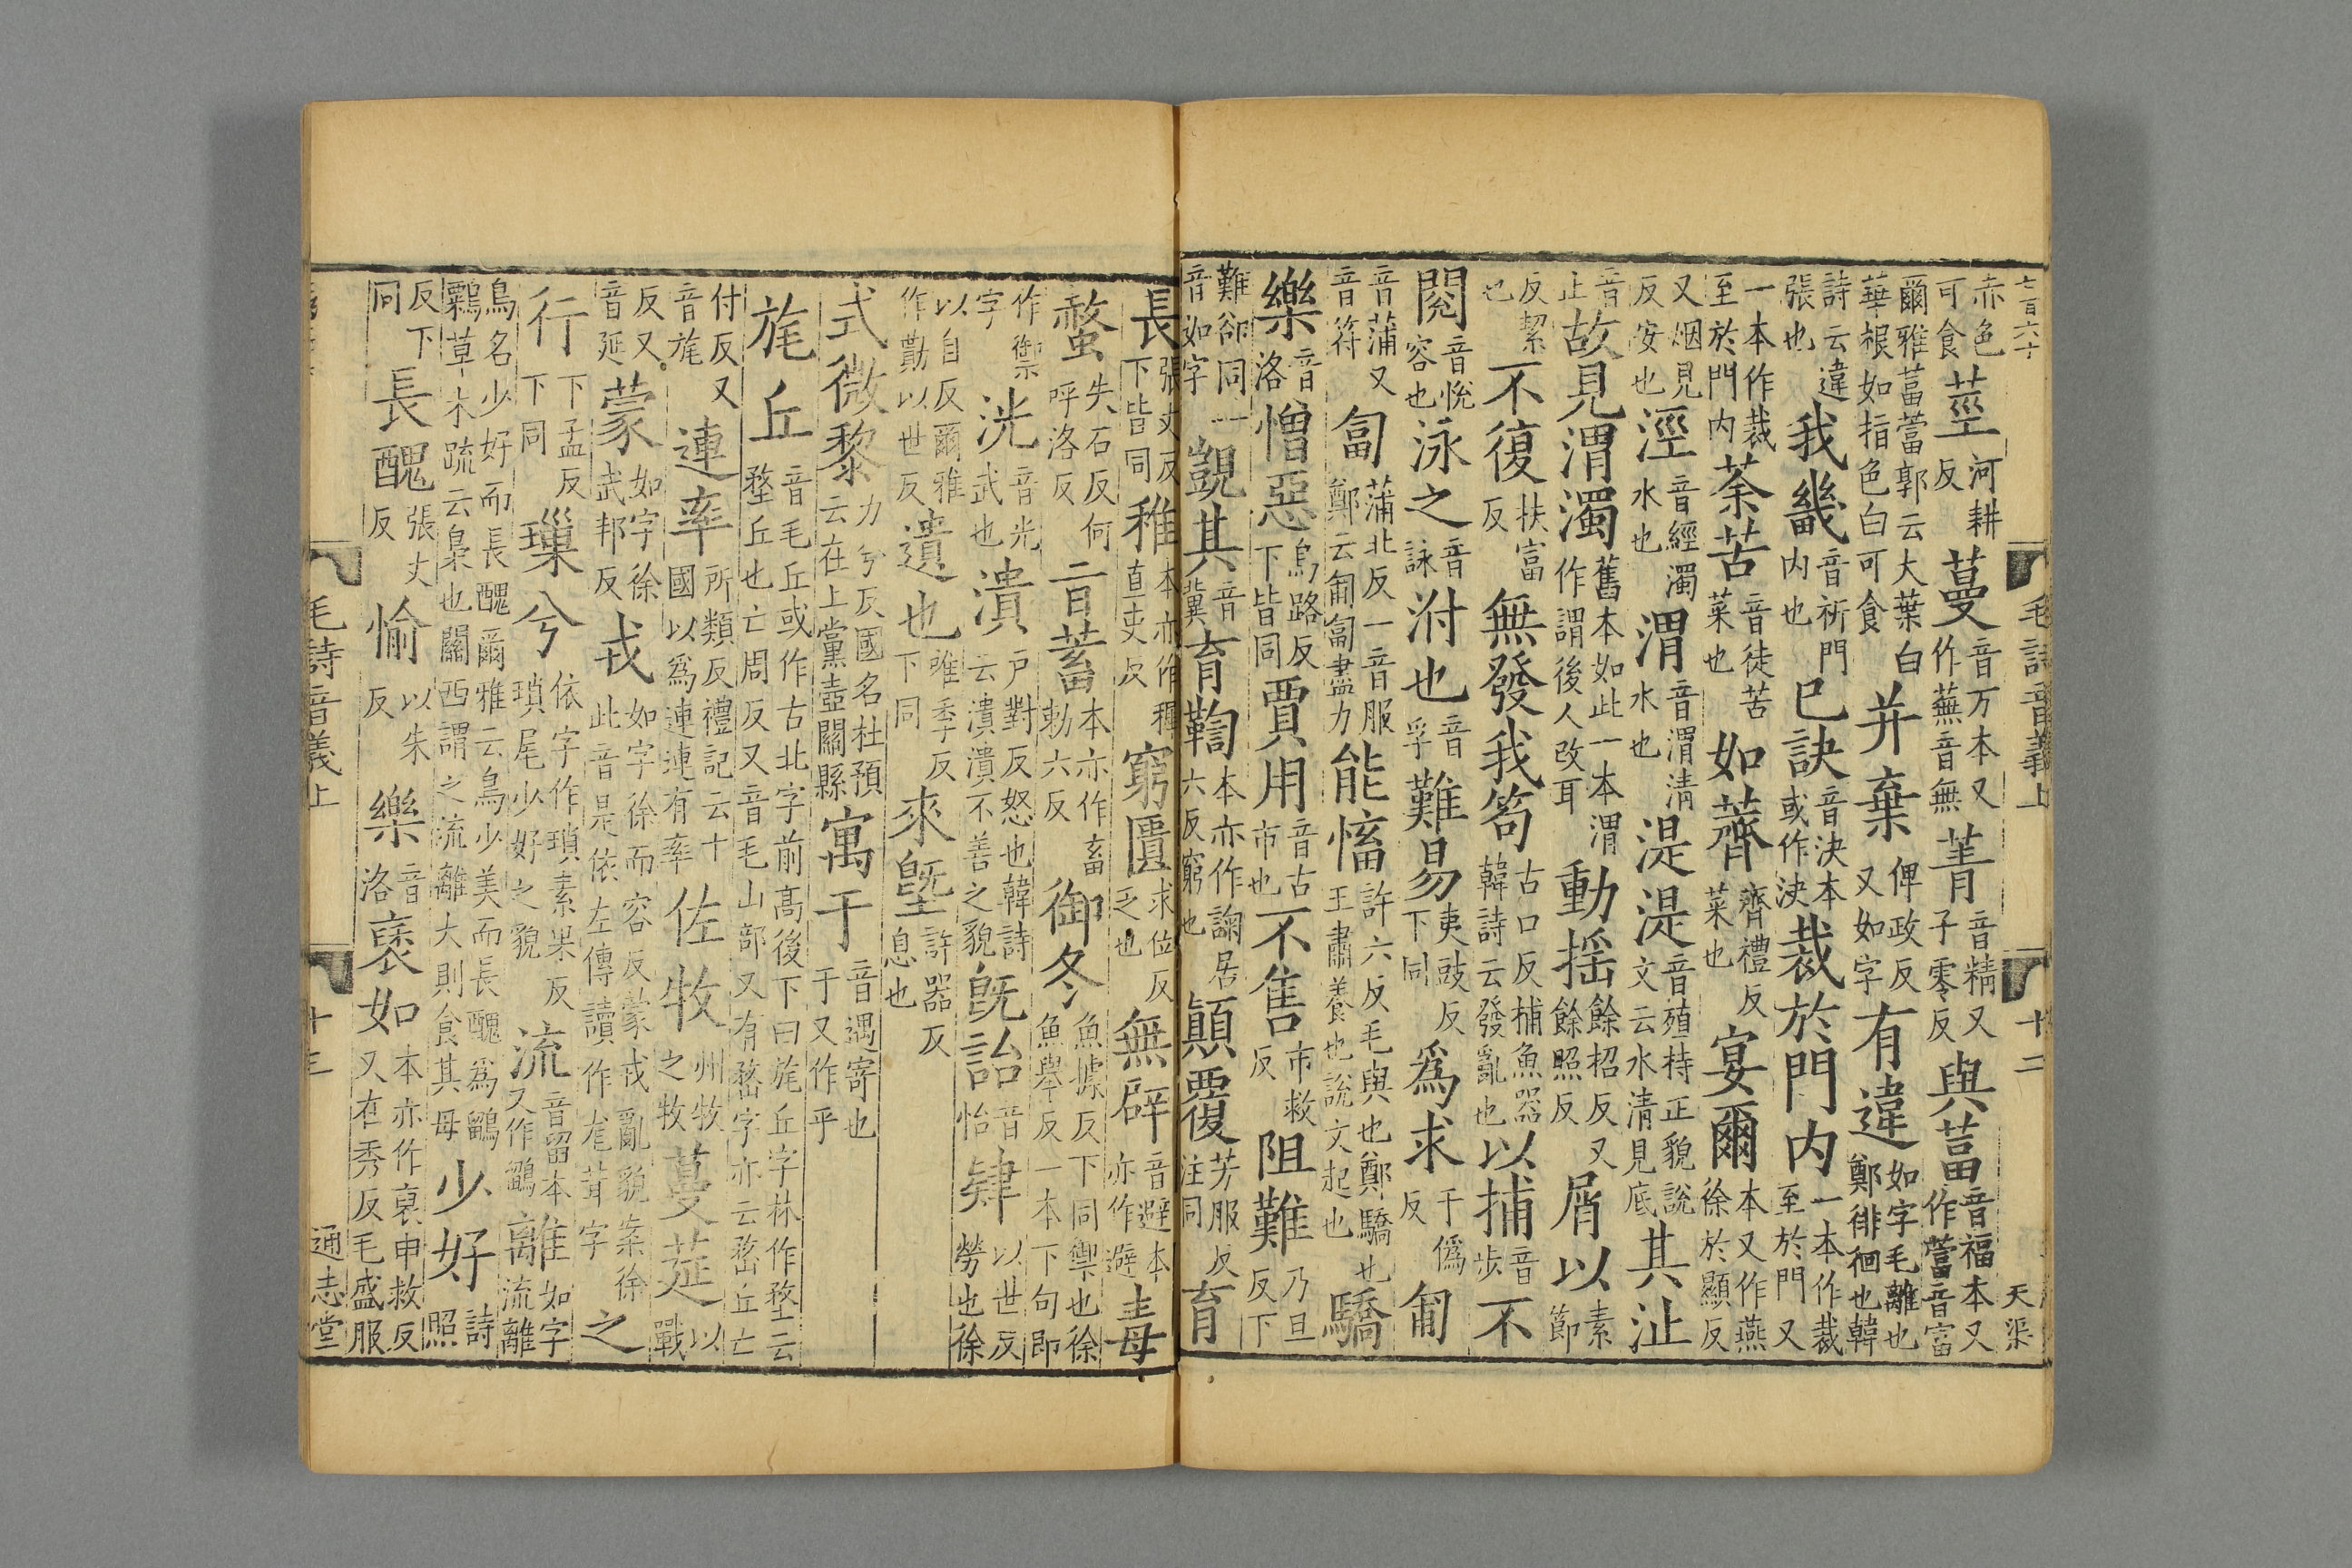 七百六十 毛詩音義上 十二 天渠
赤色可食 莖河耕反 蔓音万本又作蕪音無 菁音精又子零反 與葍音福本又作䔰音富
爾雅葍䔰郭云大葉白華根如指色白可食 并棄俾政反又如字 有違如字毛離也鄭徘徊也韓
詩云違張也 我畿音祈門内也 已訣音決本或作決 裁於門内一本作裁至於門又
一本作裁至於門内 荼苦音徒苦菜也 如薺齊禮反菜也 宴爾本又作燕徐於顯反
又烟見反安也 涇音經濁水也 渭音謂清水也 湜湜音殖持正貌說文云水清見底 其沚
音止 故見渭濁舊本如此一本渭作謂後人改耳 動揺餘招反又餘照反 屑以素節
反絜也 不復扶富反 無發我笱古口反捕魚器韓詩云發亂也 以捕音步 不
閱音悅容也 泳之音詠 泭也音孚 難易夷豉反下同 爲求于僞反 匍
音蒲又音符 匐蒲北反一音服鄭云匍匐盡力 能慉許六反毛與也鄭驕也王肅養也說文起也 驕
樂音洛 憎惡烏路反下皆同 賈用音古市也 不售市救反 阻難乃旦反下
難卻同一音如字 覬其音冀 育鞫本亦作諊居六反窮也 顚覆芳服反注同 育
長張丈反下皆同 稚本亦作稺直吏反 窮匱求位反乏也 無辟音避本亦作避 毒
螫失石反何呼洛反 旨蓄本亦作畜勑六反 御冬魚據反下同禦也徐魚舉反一本下句即
作禦字 洸音光武也 潰戸對反怒也韓詩云潰潰不善之貌 旣詒音怡 肄以世反勞也徐
以自反爾雅作勩以世反 遺也唯季反下同 來墍許器反息也
式微 黎力兮反國名杜預云在上黨壺關縣 寓于音遇寄也于又作乎
旄丘音毛丘或作古北字前高後下曰旄丘字林作堥云堥丘也亡周反又音毛山部又有嵍字亦云嵍丘亡
付反又音旄 連率所類反禮記云十國以爲連連有率 佐牧州牧之牧 蔓莚以戰
反又音延 蒙如字徐武邦反 戎如字徐而容反蒙戎亂貌案徐此音是依左傳讀作尨茸字 之
行下孟反下同 璅兮依字作瑣素果反瑣尾少好之貌 流音留本又作鶹 離如字流離
鳥名少好而長醜爾雅云鳥少美而長醜爲鶹鷅草木疏云梟也關西謂之流離大則食其母 少好詩照
反下同 長醜張丈反 愉以朱反 樂音洛 褎如本亦作裒由救反又在秀反毛盛服
毛詩音義上 十三 通志堂